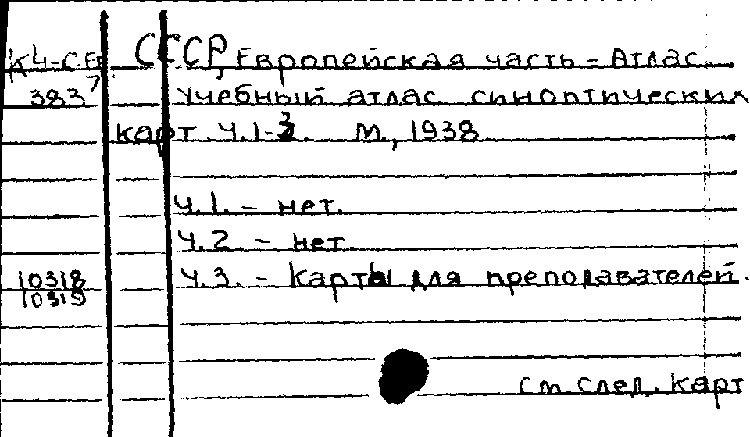 К4-С.Ев СССР, Европейская часть - Атлас
7
383 Учебный атлас синоптических
карт. Ч.1-3. М., 1938
Ч.1. - нет.
Ч.2 - нет
10318 Ч.3. - Карты для преподавателей.
10319
см след. карт